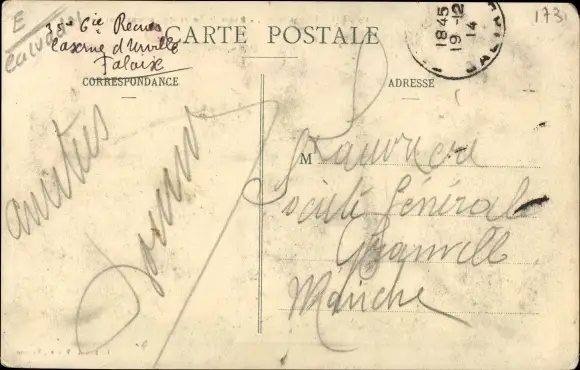 E
Calvados
35e 6ie Recrues
Caserne d'Urville
Falaise
CARTE POSTALE
1845
19-12
14
1731
CORRESPONDANCE
ADRESSE
amitiés
M
Société Générale
Granville
Manche